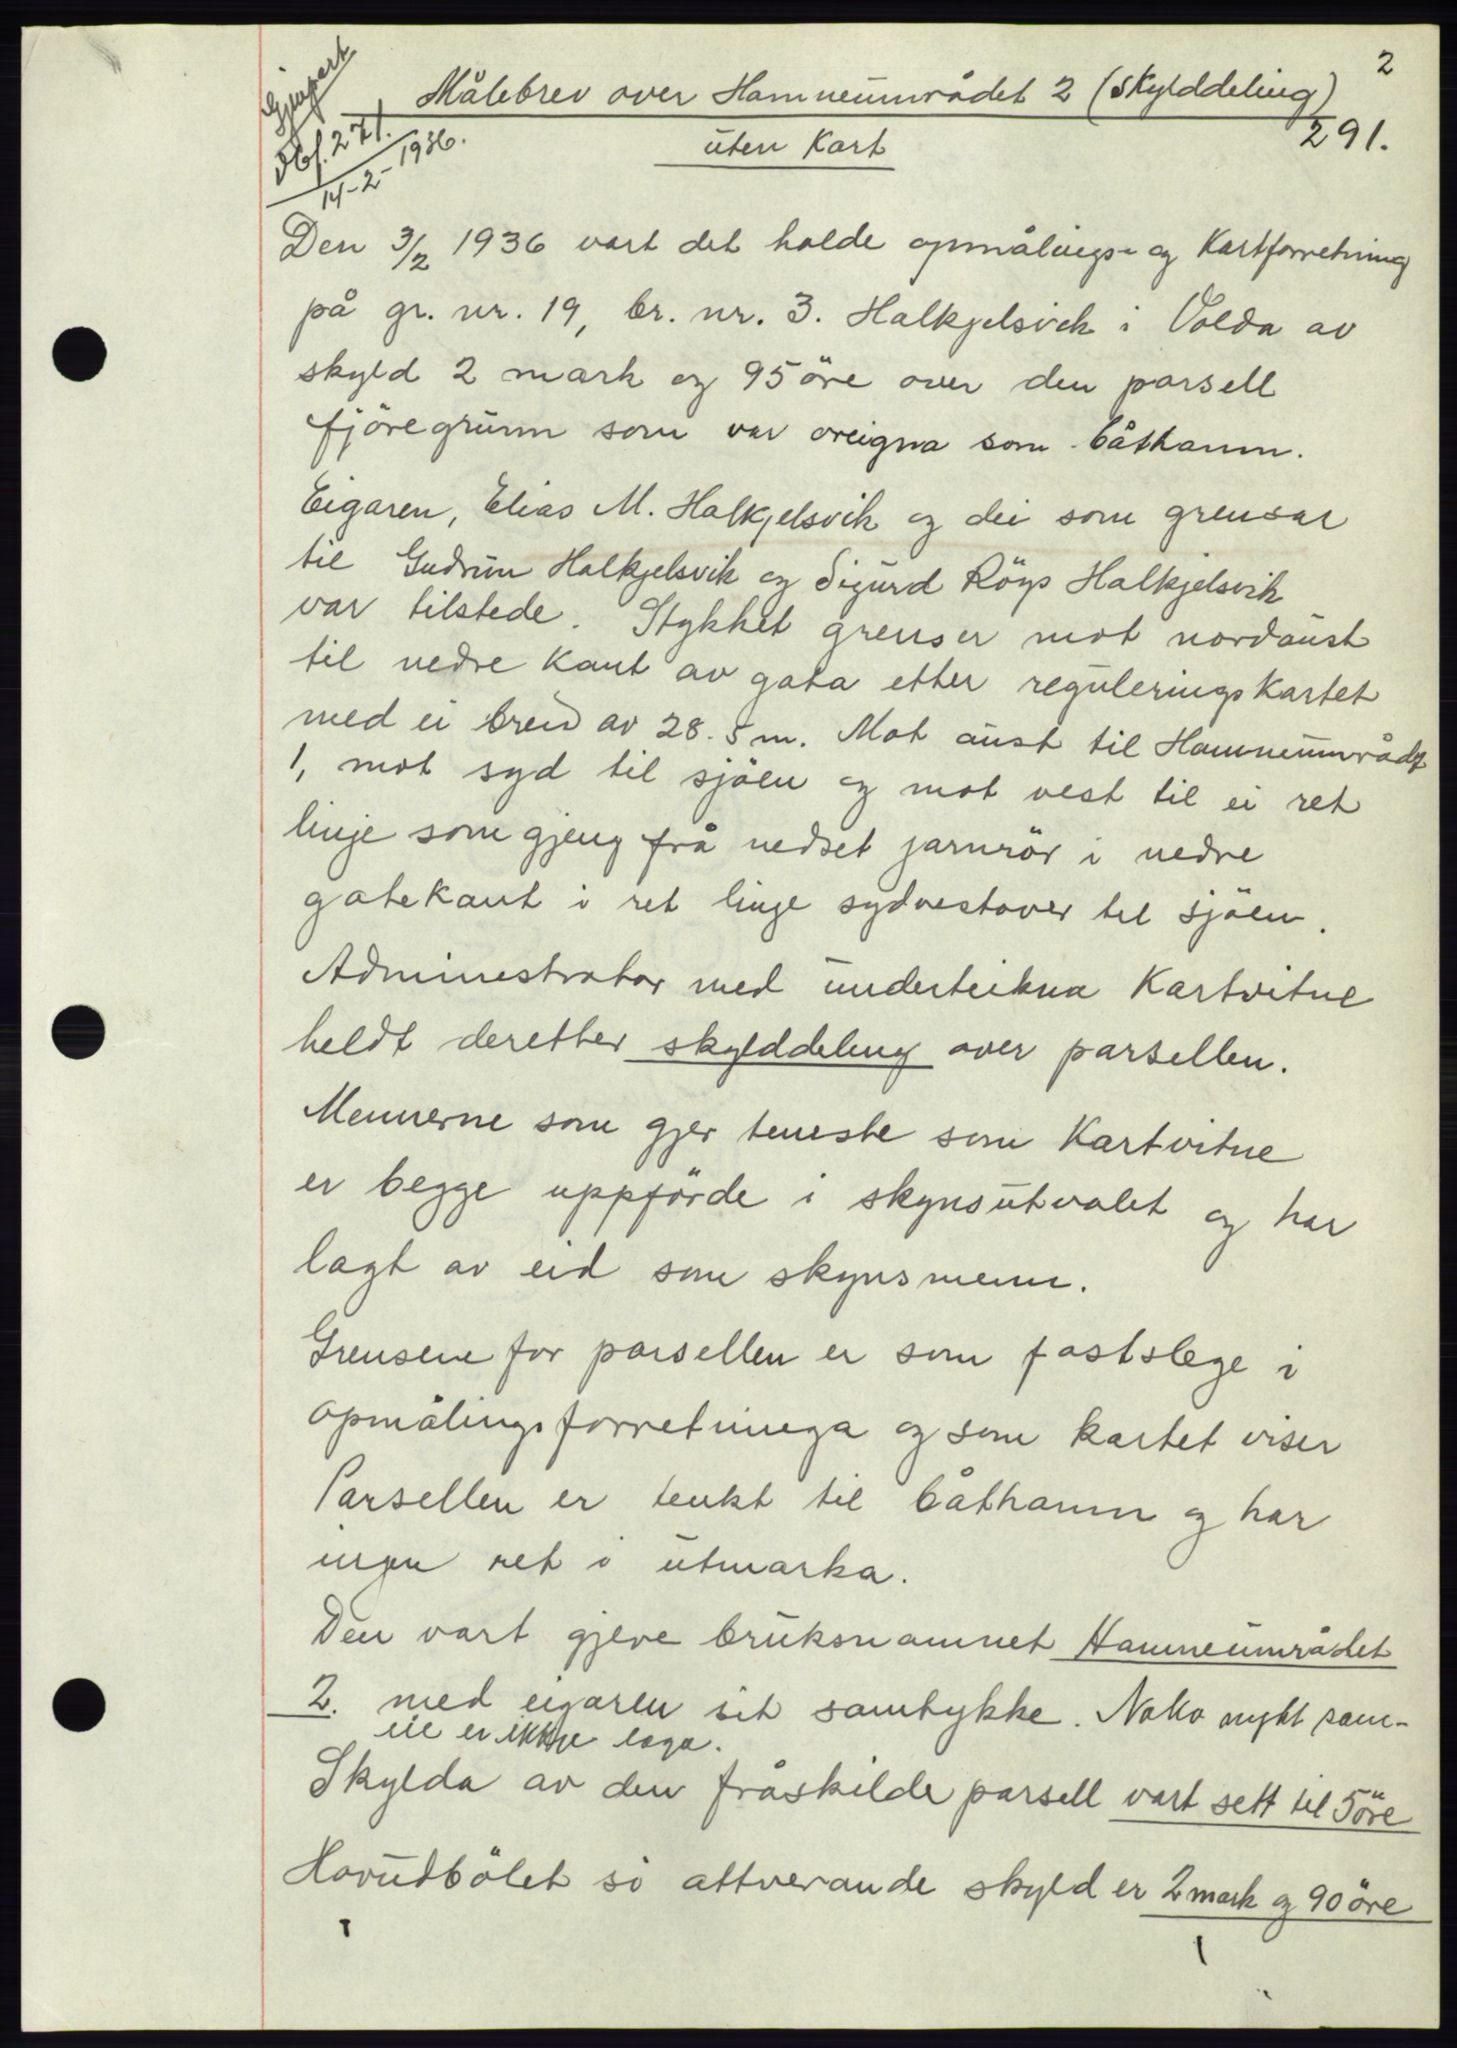 2
Målebrev over Hamneumrådet 2 (Skylddeling)
291.
uten Kart
Gjenpart
dbf. 271.
14-2-1936.
Den 3/2 1936 vart det halde opmålings- og Kartforretning
på gr. nr. 19, br. nr. 3. Halkjelsvik i Volda av
skyld 2 mark og 95 öre over den parsell
fjöregrunn som var oreigna som båthamn.
Eigaren, Elias M. Halkjelsvik og dei som grensar
til Gudrun Halkjelsvik og Sigurd Röys Halkjelsvik
var tilstede. Stykket grenser mot nordaust
til nedre Kant av gata etter reguleringskartet
med ei breid av 28.5 m. Mot aust til Hamneumrådet
1, mot syd til sjöen og mot vest til ei ret
linje som gjeng frå nedset jarnrör i nedre
gatekant i ret linje sydvestover til sjöen.
Administrator med underteikna Kartvitne
heldt deretter skylddeling over parsellen.
Mennerne som gjer teneste som Kartvitne
er begge uppförde i skynsutvalet og har
lagt av eid som skynsmenn.
Grensene for parsellen er som fastslege i
opmålingsforretninga og som kartet viser
Parsellen er tenkt til båthamn og har
ingen ret i utmarka.
Den vart gjeve bruksnamnet Hamneumrådet
2. med eigaren sit samtykke. Noko nytt sam-
eie er ikkje laga.
Skylda av den fråskilde parsell vart sett til 5 öre
Hovudbölet si attverande skyld er 2 mark og 90 öre